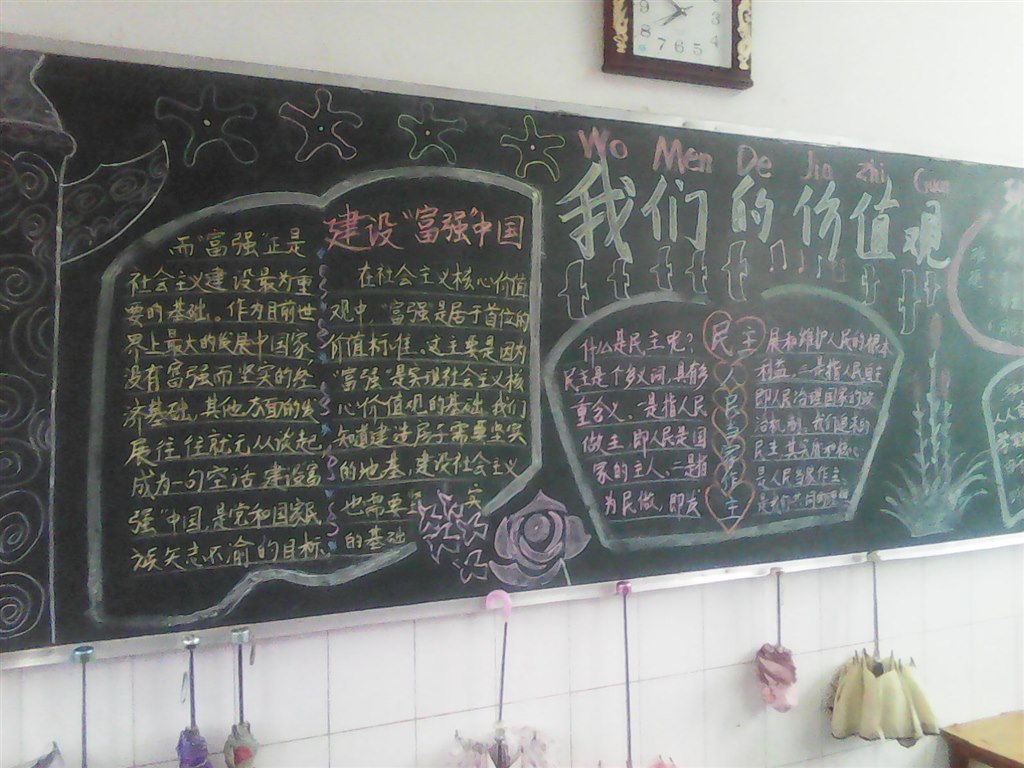 Wo Men De Jia zhi Guan
我们的价值观
建设"富强"中国
在社会主义核心价值
观中"富强是居于首位的
价值标准。这主要是因为
"富强"是实现社会主义核
心价值观的基础。我们
知道建造房子需要坚实
的地基,建设社会主义
也需要
实
的基础
而"富强"正是
社会主义建设最为重
要的基础。作为目前世
界上最大的发展中国家
没有富强而坚实的经
济基础,其他方面的发
展往往就无从谈起
成为一句空话 建设富
强"中国,是党和国家民
族矢志不渝的目标。
民主
人民当家作主
什么是民主呢?
民主是个多义词,具有多
重含义。一是指人民
做主,即人民是国
家的主人,二是指
为民做,即发
展和维护人民的根本
利益,三是指人民自主
即人民治理国家的政
治机制。我们追求的
民主 其
是人民当家作主
8 7 6 5 4 3 9